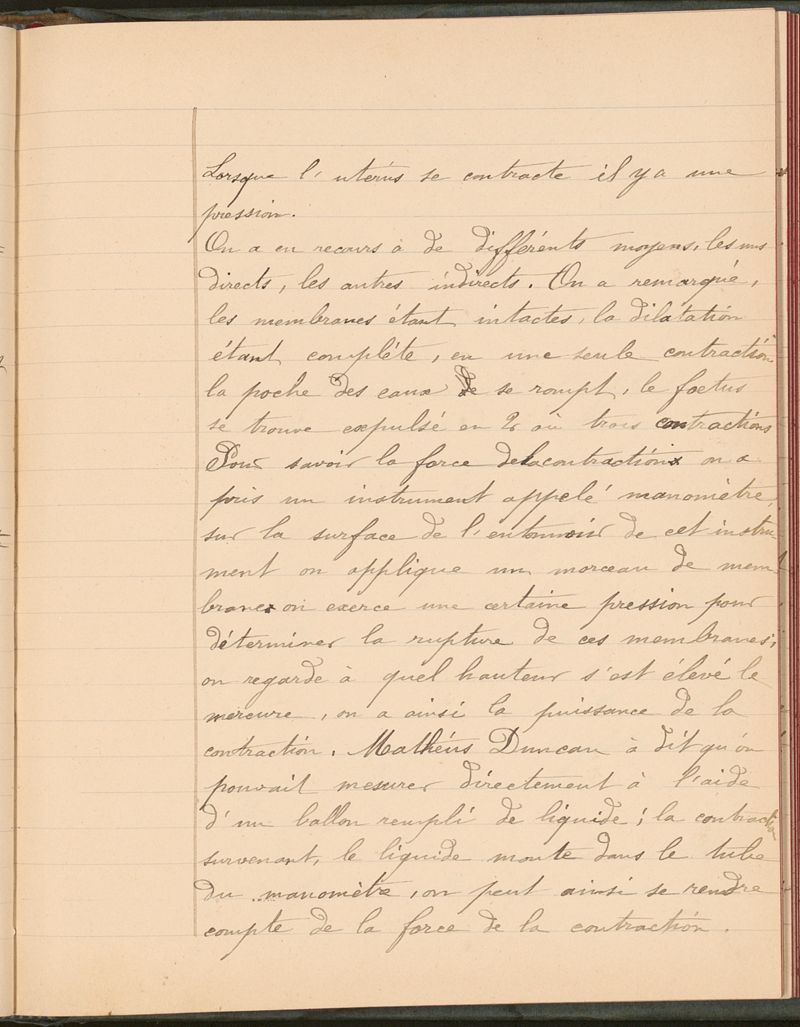 Lorsque l'utérus se contracte il y a une
pression.
On a eu recours à de différents moyens, les uns
directs, les autres indirects. On a remarqué,
les membranes étant intactes, la dilatation
étant complète, en une seule contraction
la poche des eaux se rompt, le foetus
se trouve expulsé en 2 ou trois contractions
Pour savoir la force de la contraction on a
pris un instrument appelé manomètre,
sur la surface de l'entonnoir de cet instru
ment on applique un morceau de mem
brane on exerce une certaine pression pour
déterminer la rupture de ces membranes;
on regarde à quel hauteur s'est élevé le
mercure, on a ainsi la puissance de la
contraction. Mathéus Duncan à dit qu'on
pouvait mesurer directement à l'aide
d'un ballon rempli de liquide; la contraction
survenant, le liquide monte dans le tube
du manomètre, on peut ainsi se rendre
compte de la force de la contraction.